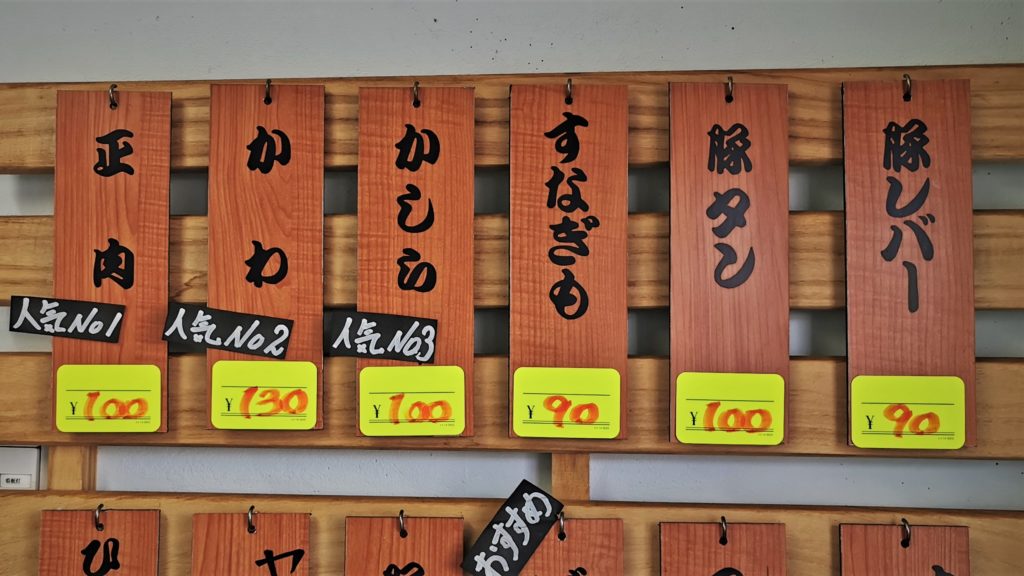 正肉
人気No1
¥100
かわ
人気No2
¥130
かしら
人気No3
¥100
すなぎも
¥90
豚タン
¥100
豚レバー
¥90
ひ
ヤ
おすすめ